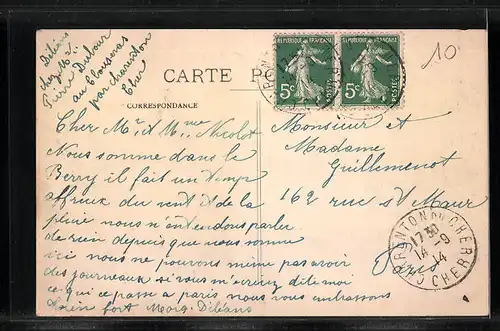 Déléans
chez Mr
Pierre Dubour
au Clouseras
par charenton
Cher
CARTE PO
CORRESPONDANCE
REPUBLIQUE FRANÇAISE
REPUBLIQUE FRANÇAISE
5c POSTES
5c POSTES
10
Cher Mr et Mme Nicolot
Nous somme dans le
Berry il fait un temps
affreux du vent et de la
pluie nous n'entendons parler
de rien depuis que nous somme
ici nous ne pouvons même pas avoir
des journeaux si vous m'ecrivez dite moi
ce qui ce passe a paris nous vous embrassons
bien fort Déléans
Monsieur et
Madame
Guillemenot
162 rue St Maur
Paris
CHARENTON DU CHER
17 30
14 -9
14
CHER